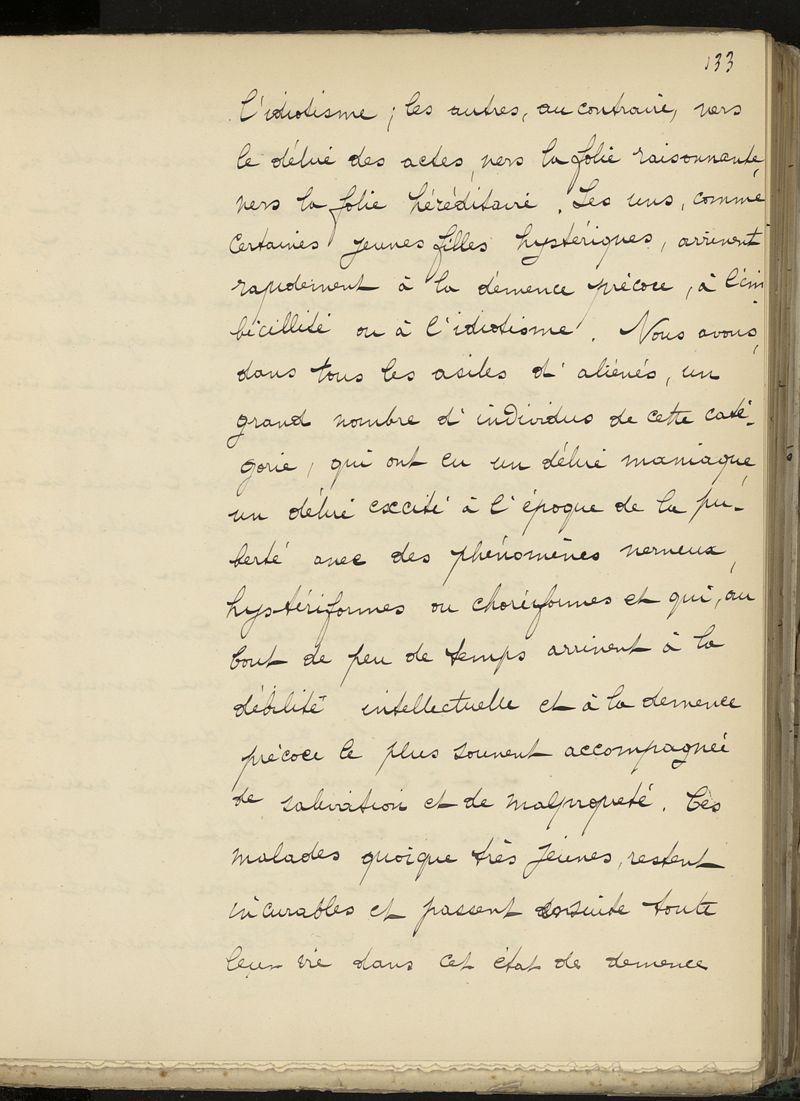 133
l'idiotisme ; les autres, au contraire, vers
le délire des actes, vers la folie raisonnante,
vers la folie héréditaire. Les uns, comme
certaines jeunes filles hystériques, arrivent
rapidement à la démence précoce, à l'im
bécillité ou à l'idiotisme. Nous avons,
dans tous les asiles d'aliénés, un
grand nombre d'individus de cette caté-
gorie, qui ont eu un délire maniaque,
un délire excité à l'époque de la pu-
berté avec des phénomènes nerveux,
hystériformes ou choréiformes et qui, au
bout de peu de temps arrivent à la
débilité intellectuelle et à la demence
précoce le plus souvent accompagnée
de salivation et de malpropreté. Ces
malades quoique très jeunes, restent
incurables et passent ensuite toute
leur vie dans cet état de demence